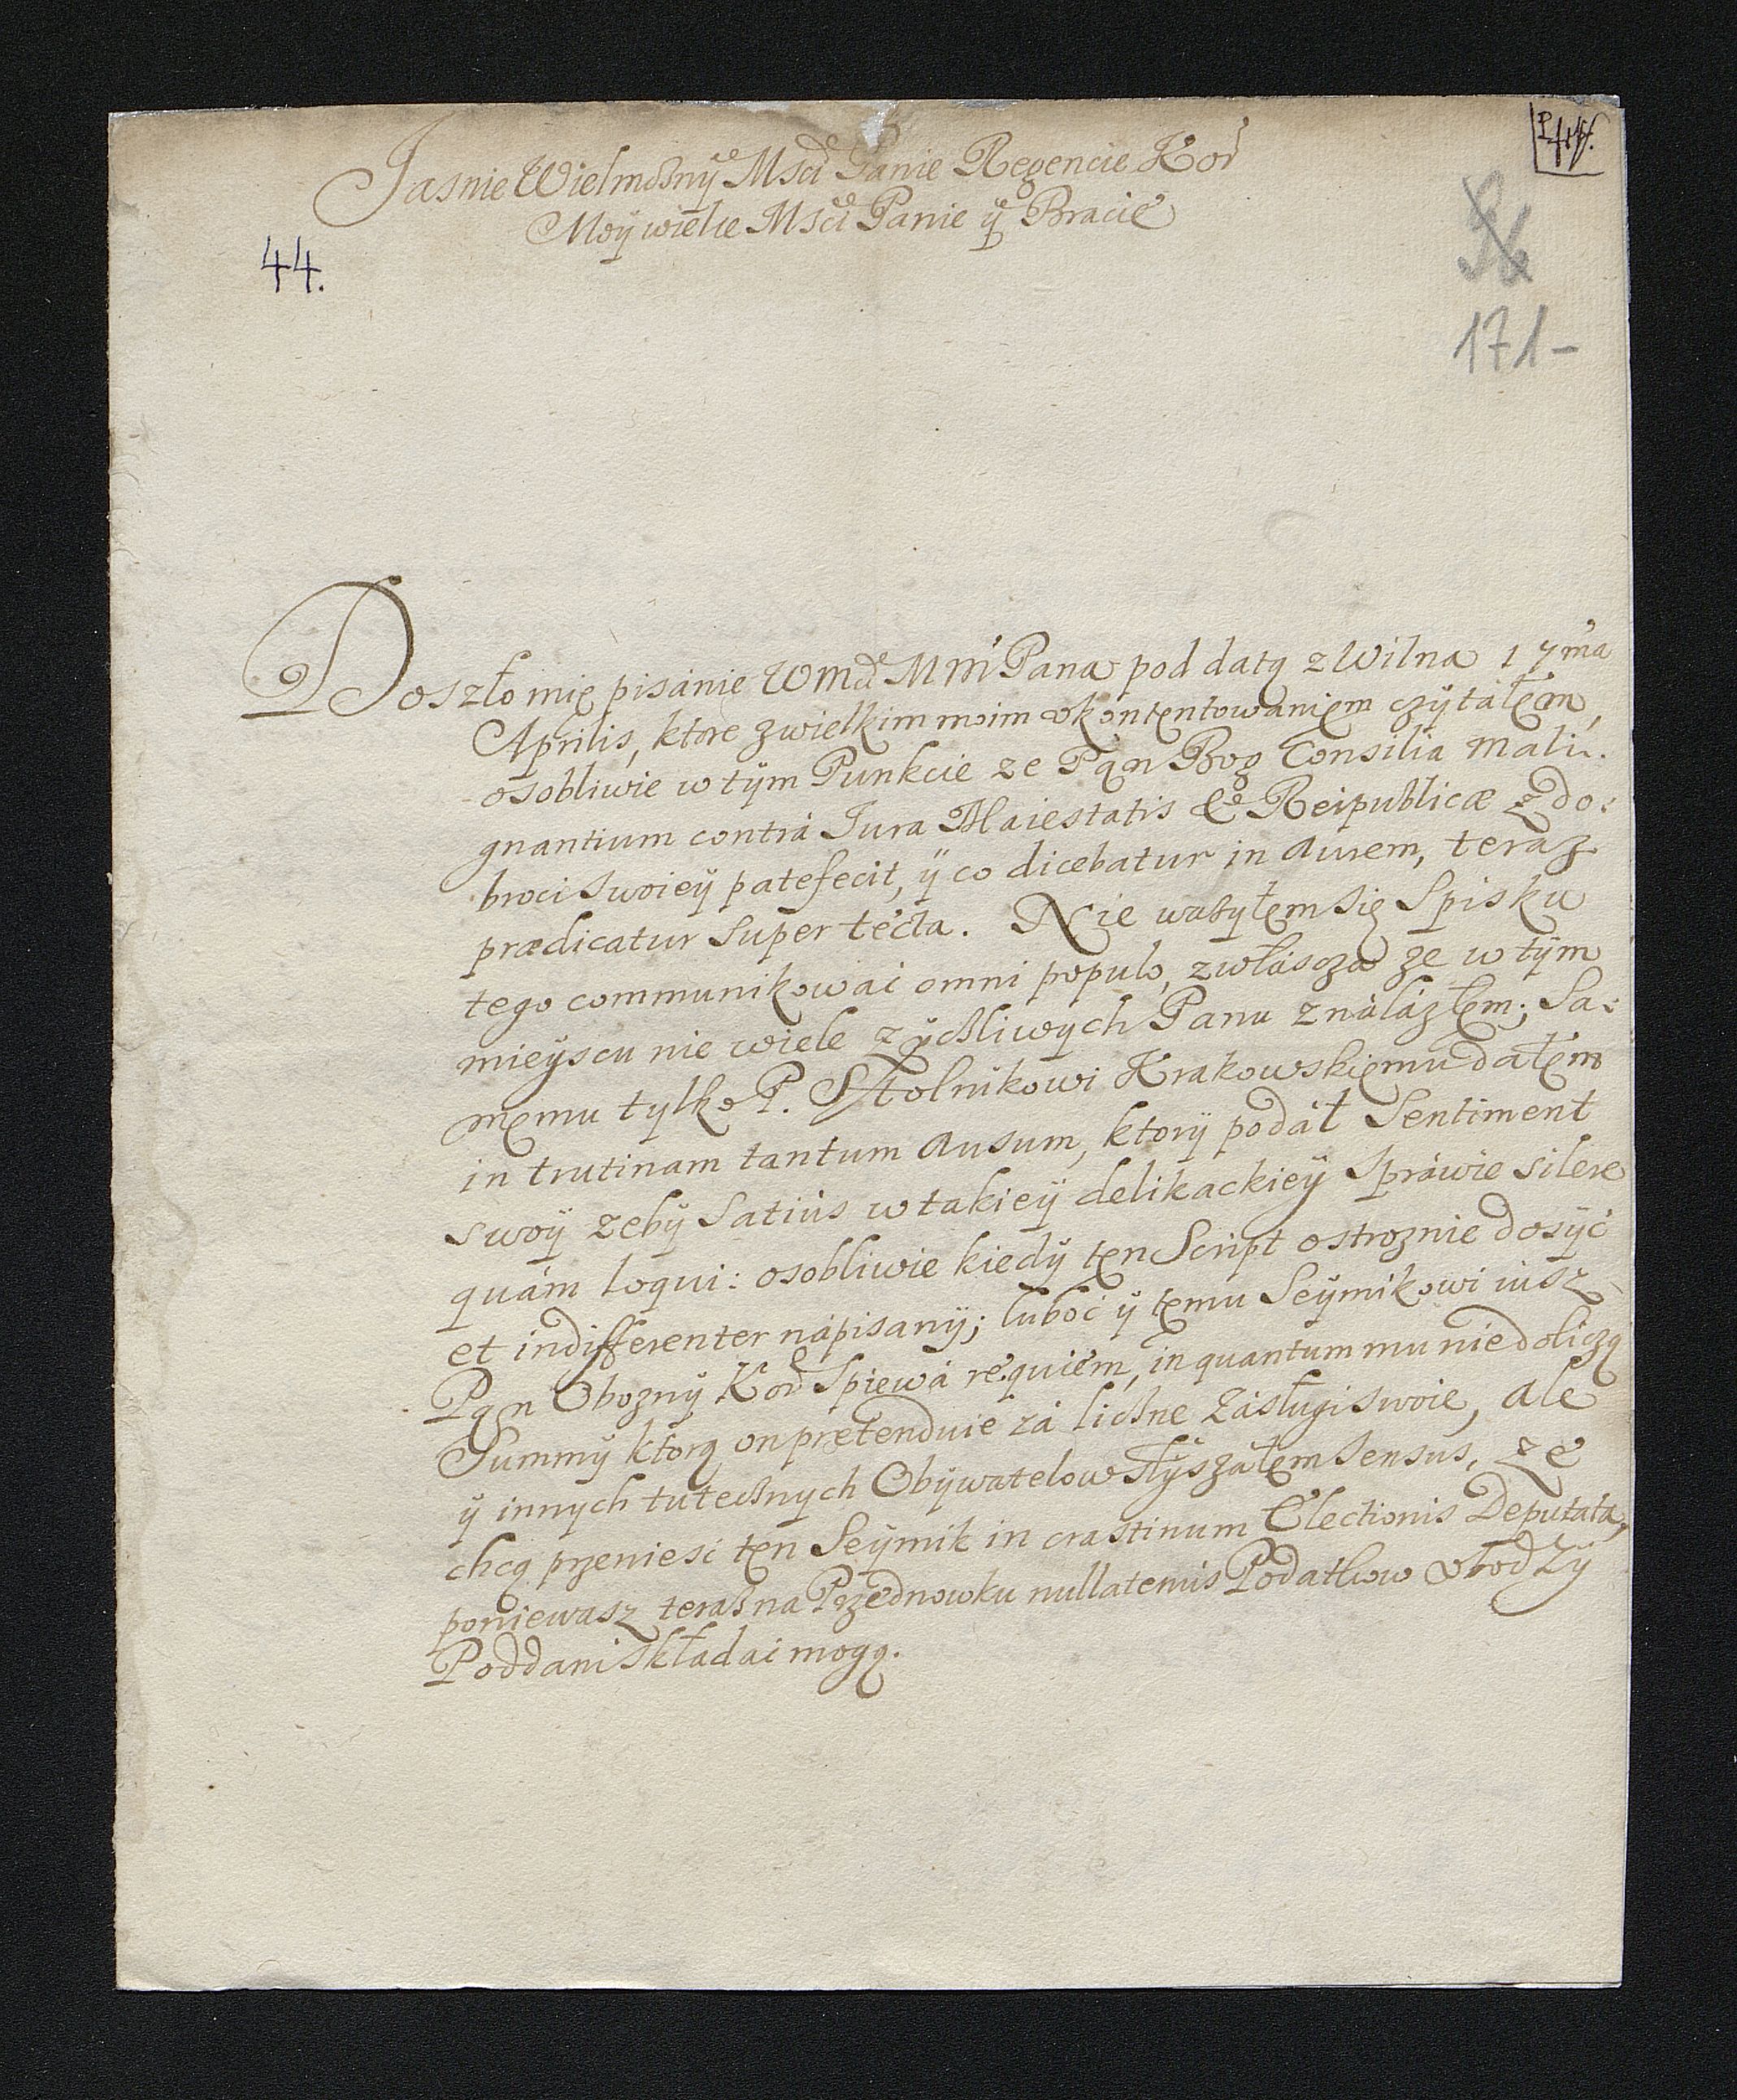 Jasnie Wielmożny Mscị Panie Regencie Kor
Moÿ wielce Mscị Panie ÿ Bracie
44.
171-
Doszło mię pisánie WMci MM Pana pod datą z Wilna 17ma
Aprilis, ktore z wielkim moim ukontentowaniem czÿtałem,
osobliwie w tÿm Punkcie ze Pąn Bog Consilia mali-
gnantium contrà Jura Maiestatis & Reipublicæ z do-
broci swoieÿ patefecit, ÿ co dicebatur in aurem, teraz
prædicatur super tecta. Nie wazyłem się Spisku
tego communikowáć omni populo, zwłáscza ze w tÿm
mieÿscu nie wiele zÿczliwych Panu ználázłem; Sa-
memu tylko P. Stolnikowi Krakowskiemu dałem
in trutinam tantum ausum, ktorÿ podáł Sentiment
swoÿ zebÿ Satiùs w takieÿ delikackieÿ Spráwie silere
quám loqui: osobliwie kiedÿ ten Script ostroznie dosÿć
et indifferenter nápisanÿ; luboć ÿ temu Seÿmikowi iusz
Pąn Oboznÿ Kor Spiewá requiem, in quantum mu nie doliczą
Summÿ ktorą on prętenduie zá liczne zásługi swoie, ale
ÿ innych tutecznych Obÿwatelow słÿszałem sensus, ze
chcą przeniesć ten Seÿmik in crastinum Electionis Deputata,
poniewasz teraz na Przednowku nullatenùs Podatkow ubodzÿ
Poddani składać mogą.